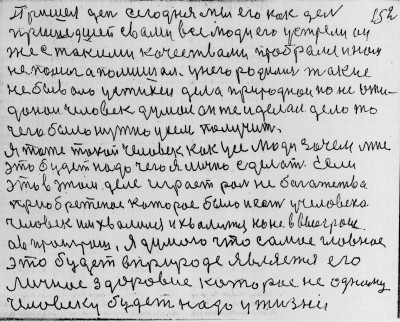 Пришел ден сегодня мы его как ден 152
пришедшай свами все люди его устрели он
же с такими качествами пробрался и нам
не помога помишал. унего родилис такие
не бывало дела природной но не ожи-
даной человек думал он те и делал дело то
чего было нужно получит.
Я тоже такой человек как усе люди зачем мне
это будет надо чего я лично сделат. Если
это в этом деле играет рол не богатства
приобретеное которое было и ест учеловека
человек им хвалился и хвалится но не ввыиграш.
а в проиграш, Я думаю что самое главное
это будет вприроде является его
личное здоровие которое не одному
человеку будет надо ужизни